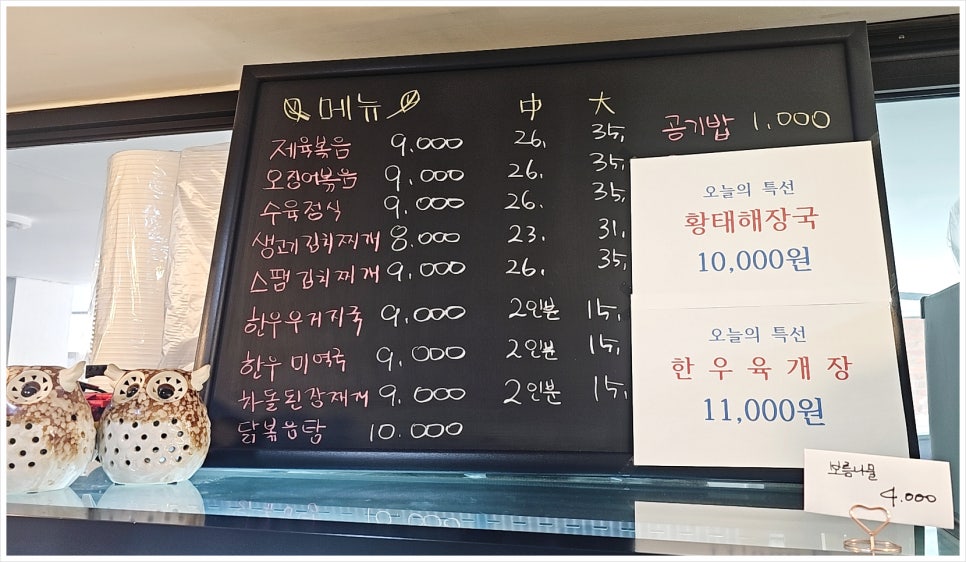 메뉴 中 大
제육볶음 9.000 26. 35,
오징어볶음 9.000 26. 35,
수육정식 9.000 26. 35,
생고기김치찌개 8.000 23. 31,
스팸김치찌개 9.000 26. 35,
한우우거지국 9.000 2인분 15,
한우미역국 9.000 2인분 15,
차돌된장찌개 9.000 2인분 15,
닭볶음탕 10.000
공기밥 1.000
오늘의 특선
황태해장국
10,000원
오늘의 특선
한우육개장
11,000원
보름나물
4.000